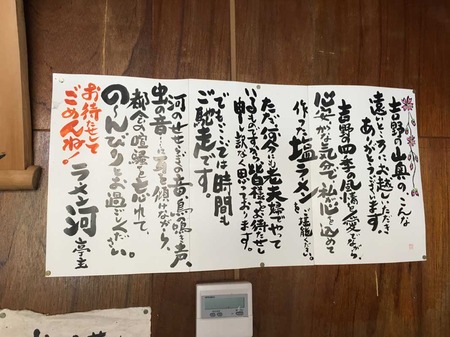 吉野の山奥のこんな
遠いところにお越しいただき
ありがとうございます。
吉野四季の風情を愛でながら
心安らぐ気分で、私心を込めて
作った塩ラーメンをご堪能ください。
ただ何分にも老夫婦でやって
いるものですから皆様をお待たせし
申し訳なく思っております。
でも…ここでは時間も
ご馳走です。
河のせせらぎの音、鳥の鳴き声、
虫の音…に耳を傾けながら、
都会の喧騒を忘れて、
の〜んびりとお過ごしください。
お待たせして
ごめんね!
ラーメン河 亭主